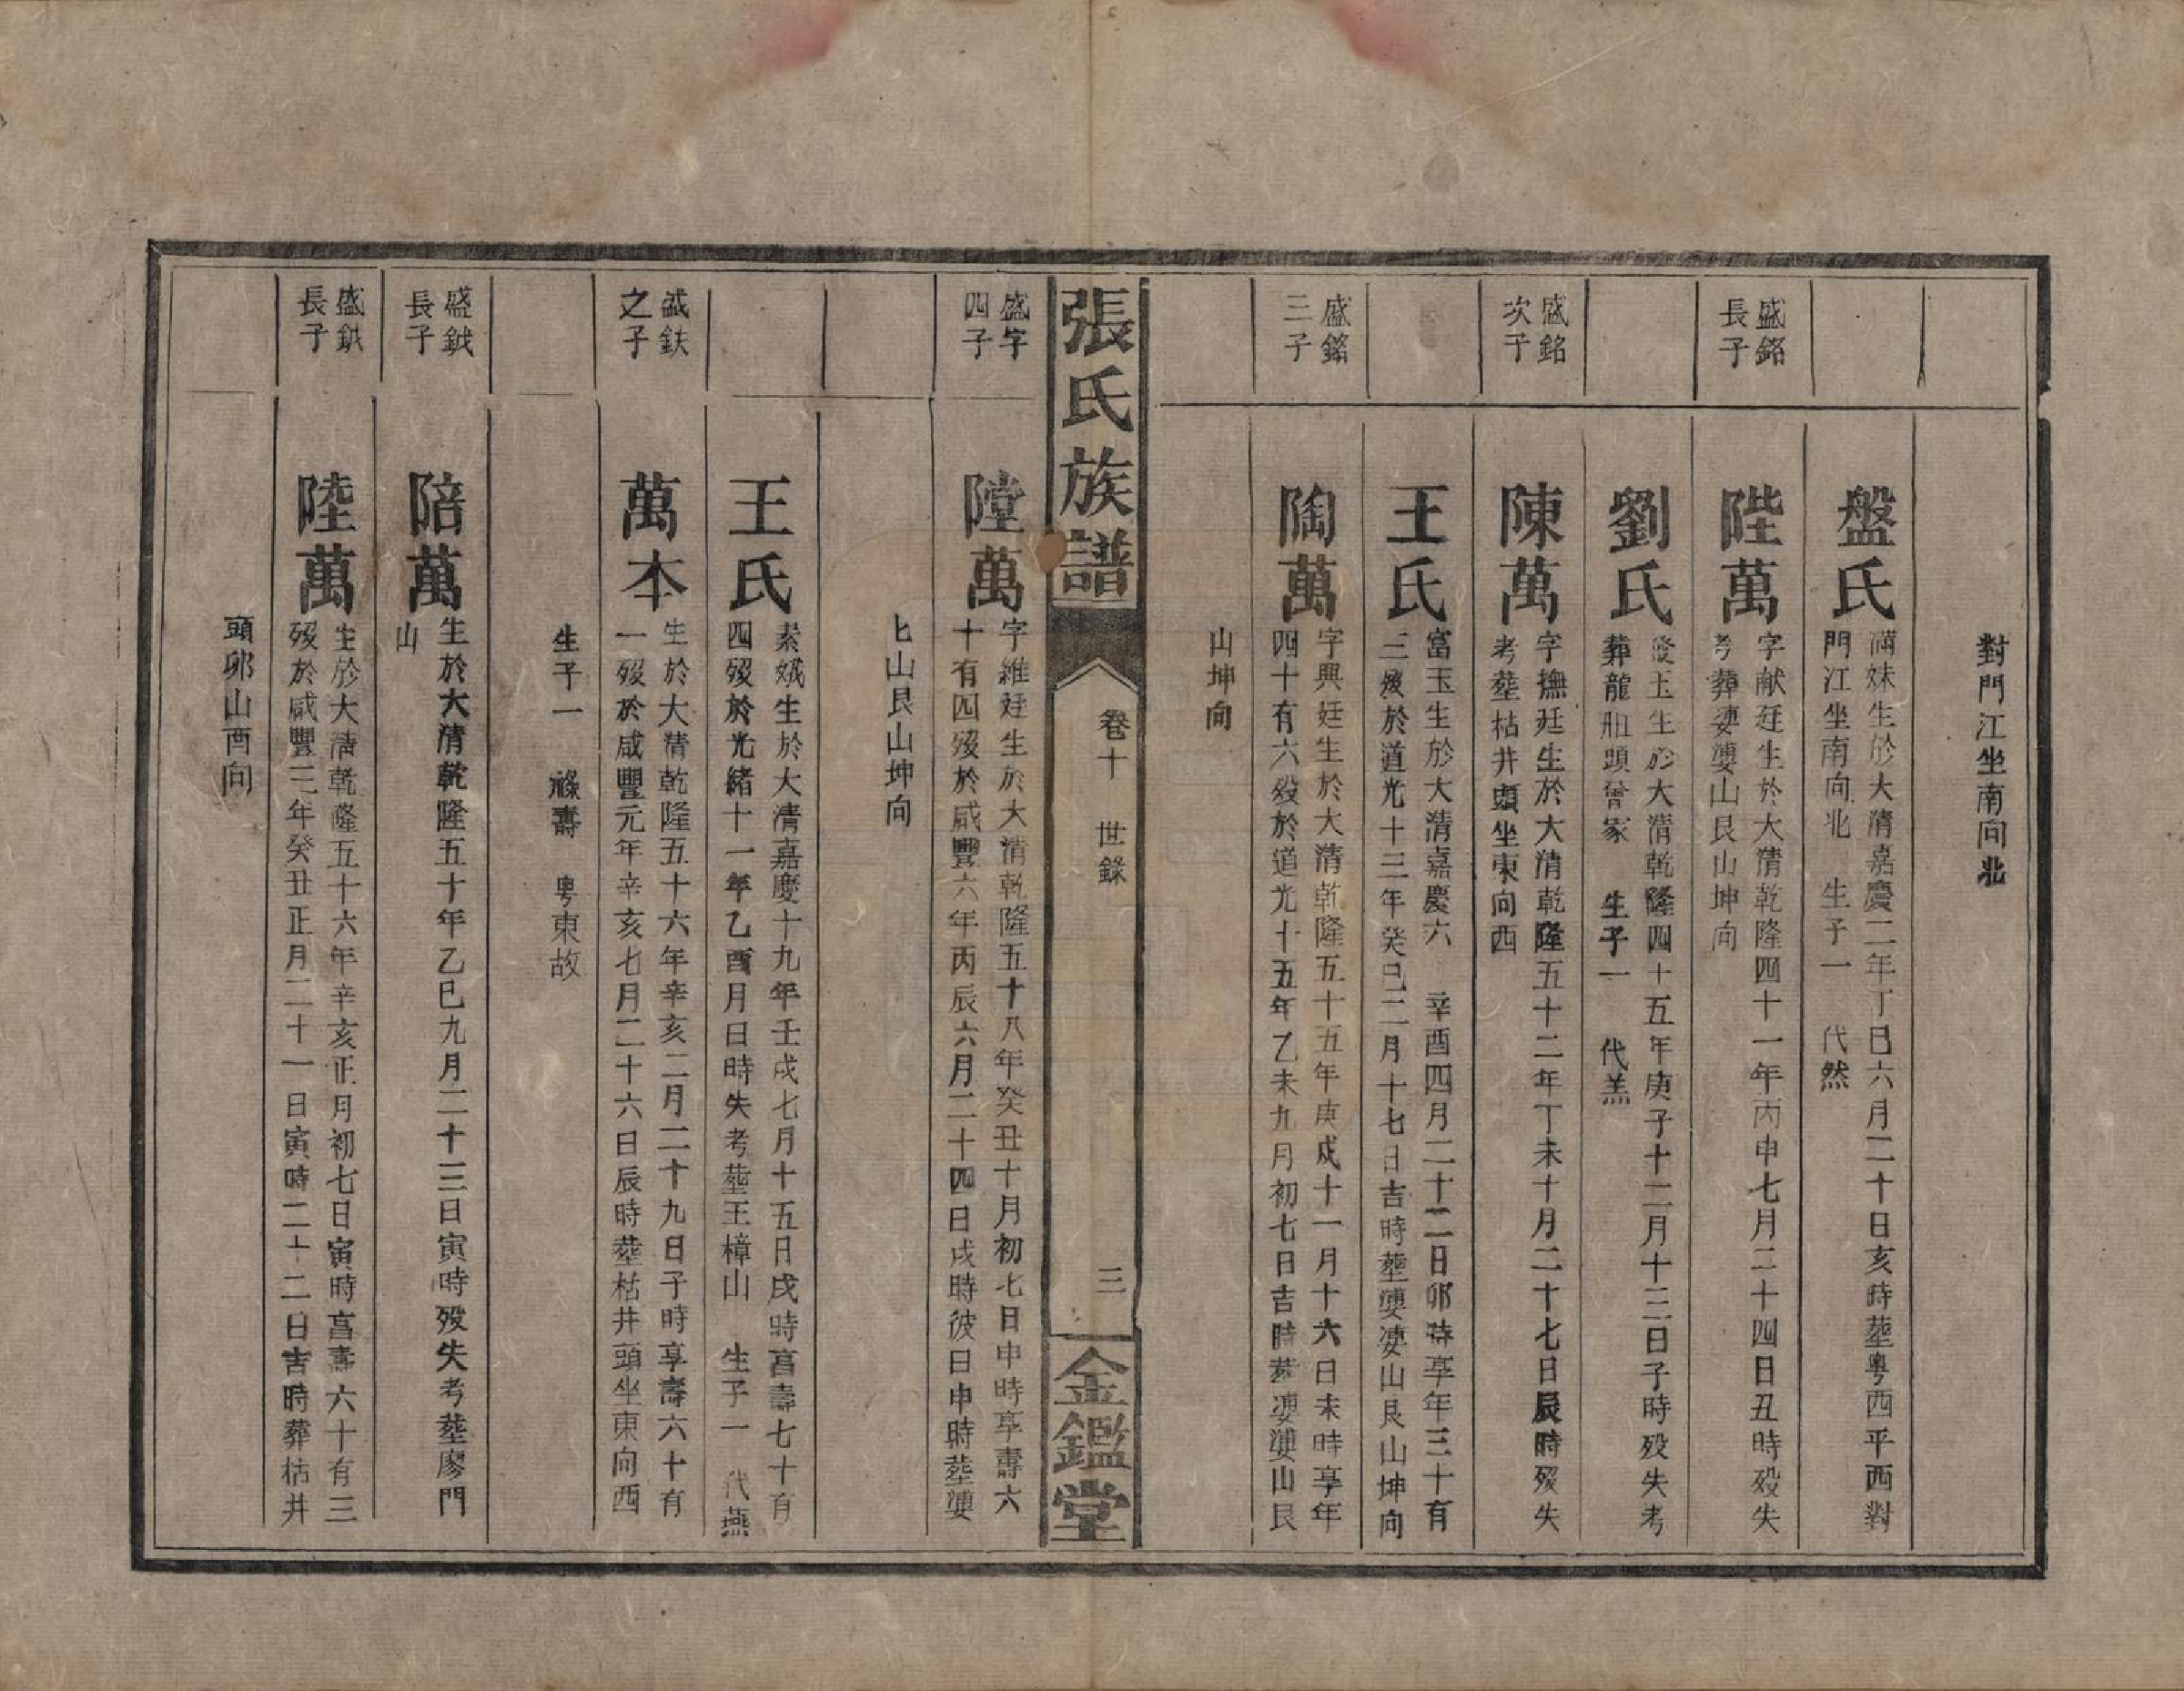 對門江坐南向北
盤氏
滿妹生於大清嘉慶二年丁巳六月二十日亥時塟粤西平西對
門江坐南向北 生子一 代然
盛銘
長子
陛萬
字献廷生於大清乾隆四十一年丙申七月二十四日丑時殁失
考葬婆山艮山坤向
劉氏
玉生於大清乾隆四十五年庚子十二月十三日子時殁失考
葬龍頭曾家 生子一 代羔
盛銘
次子
陳萬
字撫廷生於大清乾隆五十二年丁未十月二十七日辰時殁失
考塟枯井頭坐東向西
王氏
富玉生於大清嘉慶六 辛酉四月二十二日卯時享年三十有
三殁於道光十三年癸巳二月十七日吉時塟山艮山坤向
盛銘
三子
陶萬
字興廷生於大清乾隆五十五年庚戌十一月十六日未時享年
四十有六殁於道光十五年乙未九月初七日吉時塟山艮
山坤向
張氏族譜
卷十 世錄
三
金鑑堂
盛字
四子
隚萬
字維廷生於大清乾隆五十八年癸丑十月初七日申時享壽六
十有四殁於咸豐六年丙辰六月二十四日戌時彼日申時塟
山艮山坤向
王氏
素娥生於大清嘉慶十九年壬戌七月十五日戌時享壽七十有
四殁於光緒十一年乙酉月日時失考塟王樟山 生子一 代燕
誠鈇
之子
萬本
生於大清乾隆五十六年辛亥二月二十九日子時享壽六十有
一殁於咸豐元年辛亥七月二十六日辰時塟枯井頭坐東向西
生子一 祿壽 粤東故
盛鉞
長子
陪萬
生於大清乾隆五十年乙巳九月二十三日寅時殁失考塟廖門
山
盛鉷
長子
陸萬
生於大清乾隆五十六年辛亥正月初七日寅時享壽六十有三
殁於咸豐三年癸丑正月二十一日寅時二十二日吉時葬枯井
頭卯山酉向